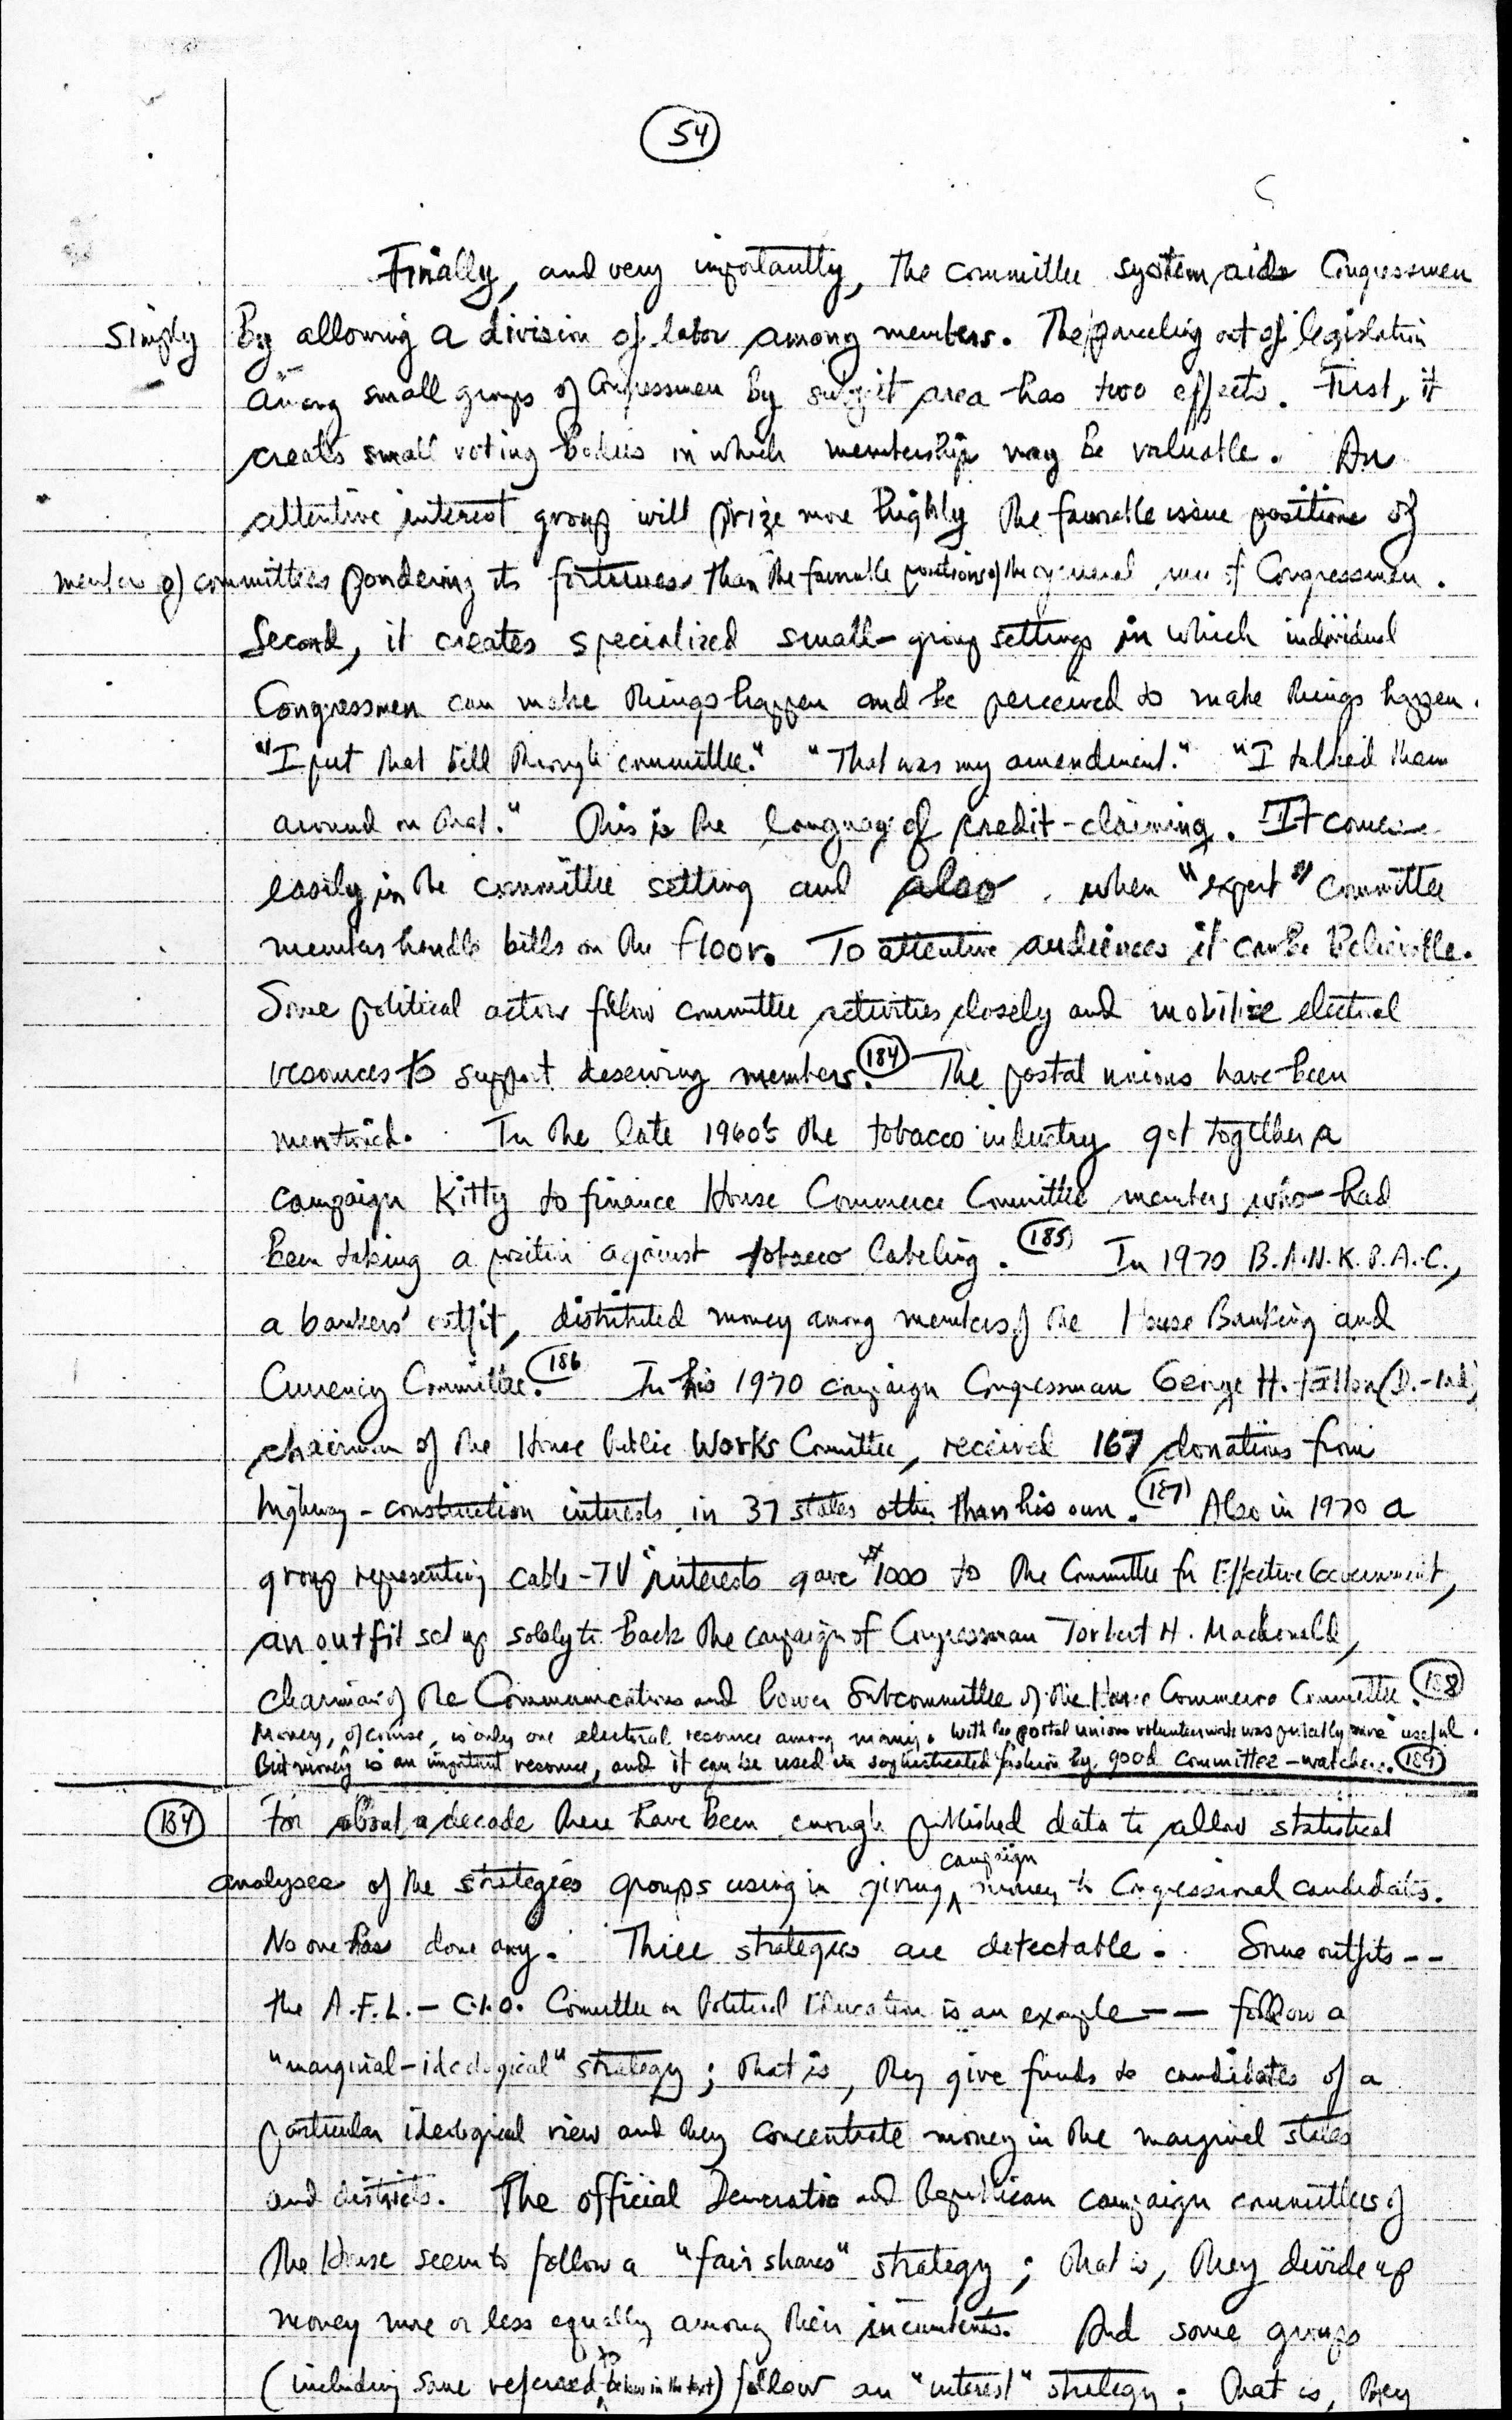 54
Finally, and very importantly, the committee system aids Congressmen
simply By allowing a division of labor among members. The parceling out of legislation
among small groups of Congressmen by subject area has two effects. First, it
creates small voting bodies in which membership may be valuable. An
attentive interest group will prize more highly the favorable issue positions of
members of committees pondering its fortunes than the favorable positions of the general run of Congressmen.
Second, it creates specialized small-group settings in which individual
Congressmen can make things happen and be perceived to make things happen.
"I put that bill through committee." "That was my amendment." "I talked them
around on that." This is the language of credit-claiming. It comes
easily in the committee setting and also when "expert" committee
members handle bills on the floor. To attentive audiences it can be believable.
Some political actors follow committee activities closely and mobilize electoral
resources to support deserving members. 184 The postal unions have been
mentioned. In the late 1960's the tobacco industry got together a
campaign kitty to finance House Commerce Committee members who had
been taking a position against tobacco labeling. 185 In 1970 B.A.N.K.P.A.C.,
a bankers' outfit, distributed money among members of the House Banking and
Currency Committee. 186 In his 1970 campaign Congressman George H. Fallon (D.-Md.)
chairman of the House Public Works Committee, received 167 donations from
highway-construction interests in 37 states other than his own. 187 Also in 1970 a
group representing cable-TV interests gave $1000 to the Committee for Effective Government,
an outfit set up solely to back the campaign of Congressman Torbert H. Macdonald,
chairman of the Communications and Power Subcommittee of the House Commerce Committee. 188
Money, of course, is only one electoral resource among many. With the postal unions volunteer work was probably more useful.
But money is an important resource, and it can be used in sophisticated fashion by good committee-watchers. 189
184 For about a decade there have been enough published data to allow statistical
analyses of the strategies groups using in giving campaign money to Congressional candidates.
No one has done any. Three strategies are detectable. Some outfits --
the A.F.L.-C.I.O. Committee on Political Education is an example -- follow a
"marginal-ideological" strategy; that is, they give funds to candidates of a
particular ideological view and they concentrate money in the marginal states
and districts. The official Democratic and Republican campaign committees of
the House seem to follow a "fair shares" strategy; that is, they divide up
money more or less equally among their incumbents. And some groups
(including some referred to below in the text) follow an "interest" strategy; that is, they